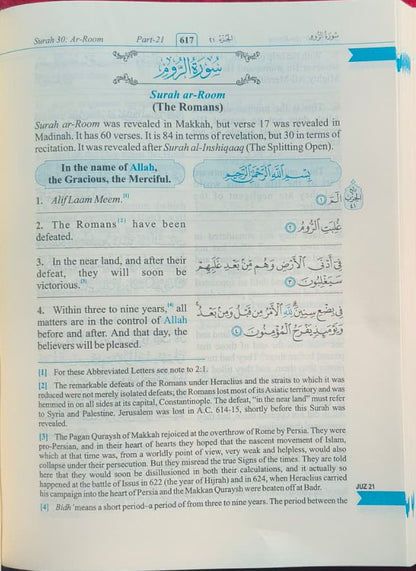 Surah 30: Ar-Room Part-21 617 الجزء ٢١ سُورَةُ الرُّوم
سُورَةُ الرُّومِ
Surah ar-Room
(The Romans)
Surah ar-Room was revealed in Makkah, but verse 17 was revealed in
Madinah. It has 60 verses. It is 84 in terms of revelation, but 30 in terms of
recitation. It was revealed after Surah al-Inshiqaaq (The Splitting Open).
In the name of Allah,
the Gracious, the Merciful.
بِسْمِ اللَّهِ الرَّحْمَٰنِ الرَّحِيمِ
1. Alif Laam Meem.[1]
الٓمٓ ١
2. The Romans[2] have been
defeated.
غُلِبَتِ الرُّومُ ٢
3. In the near land, and after their
defeat, they will soon be
victorious.[3]
فِىٓ أَدْنَى الْأَرْضِ وَهُم مِّنۢ بَعْدِ غَلَبِهِمْ
سَيَغْلِبُونَ ٣
4. Within three to nine years,[4] all
matters are in the control of Allah
before and after. And that day, the
believers will be pleased.
فِى بِضْعِ سِنِينَ ۗ لِلَّهِ الْأَمْرُ مِن قَبْلُ وَمِنۢ بَعْدُ ۚ
وَيَوْمَئِذٍ يَفْرَحُ الْمُؤْمِنُونَ ٤
[1] For these Abbreviated Letters see note to 2:1.
[2] The remarkable defeats of the Romans under Heraclius and the straits to which it was
reduced were not merely isolated defeats; the Romans lost most of its Asiatic territory and was
hemmed in on all sides at its capital, Constantinople. The defeat, "in the near land" must refer
to Syria and Palestine. Jerusalem was lost in A.C. 614-15, shortly before this Surah was
revealed.
[3] The Pagan Quraysh of Makkah rejoiced at the overthrow of Rome by Persia. They were
pro-Persian, and in their heart of hearts they hoped that the nascent movement of Islam,
which at that time was, from a worldly point of view, very weak and helpless, would also
collapse under their persecution. But they misread the true Signs of the times. They are told
here that they would soon be disillusioned in both their calculations, and it actually so
happened at the battle of Issus in 622 (the year of Hijrah) and in 624, when Heraclius carried
his campaign into the heart of Persia and the Makkan Quraysh were beaten off at Badr.
JUZ 21
[4] Bidh' means a short period–a period of from three to nine years. The period between the